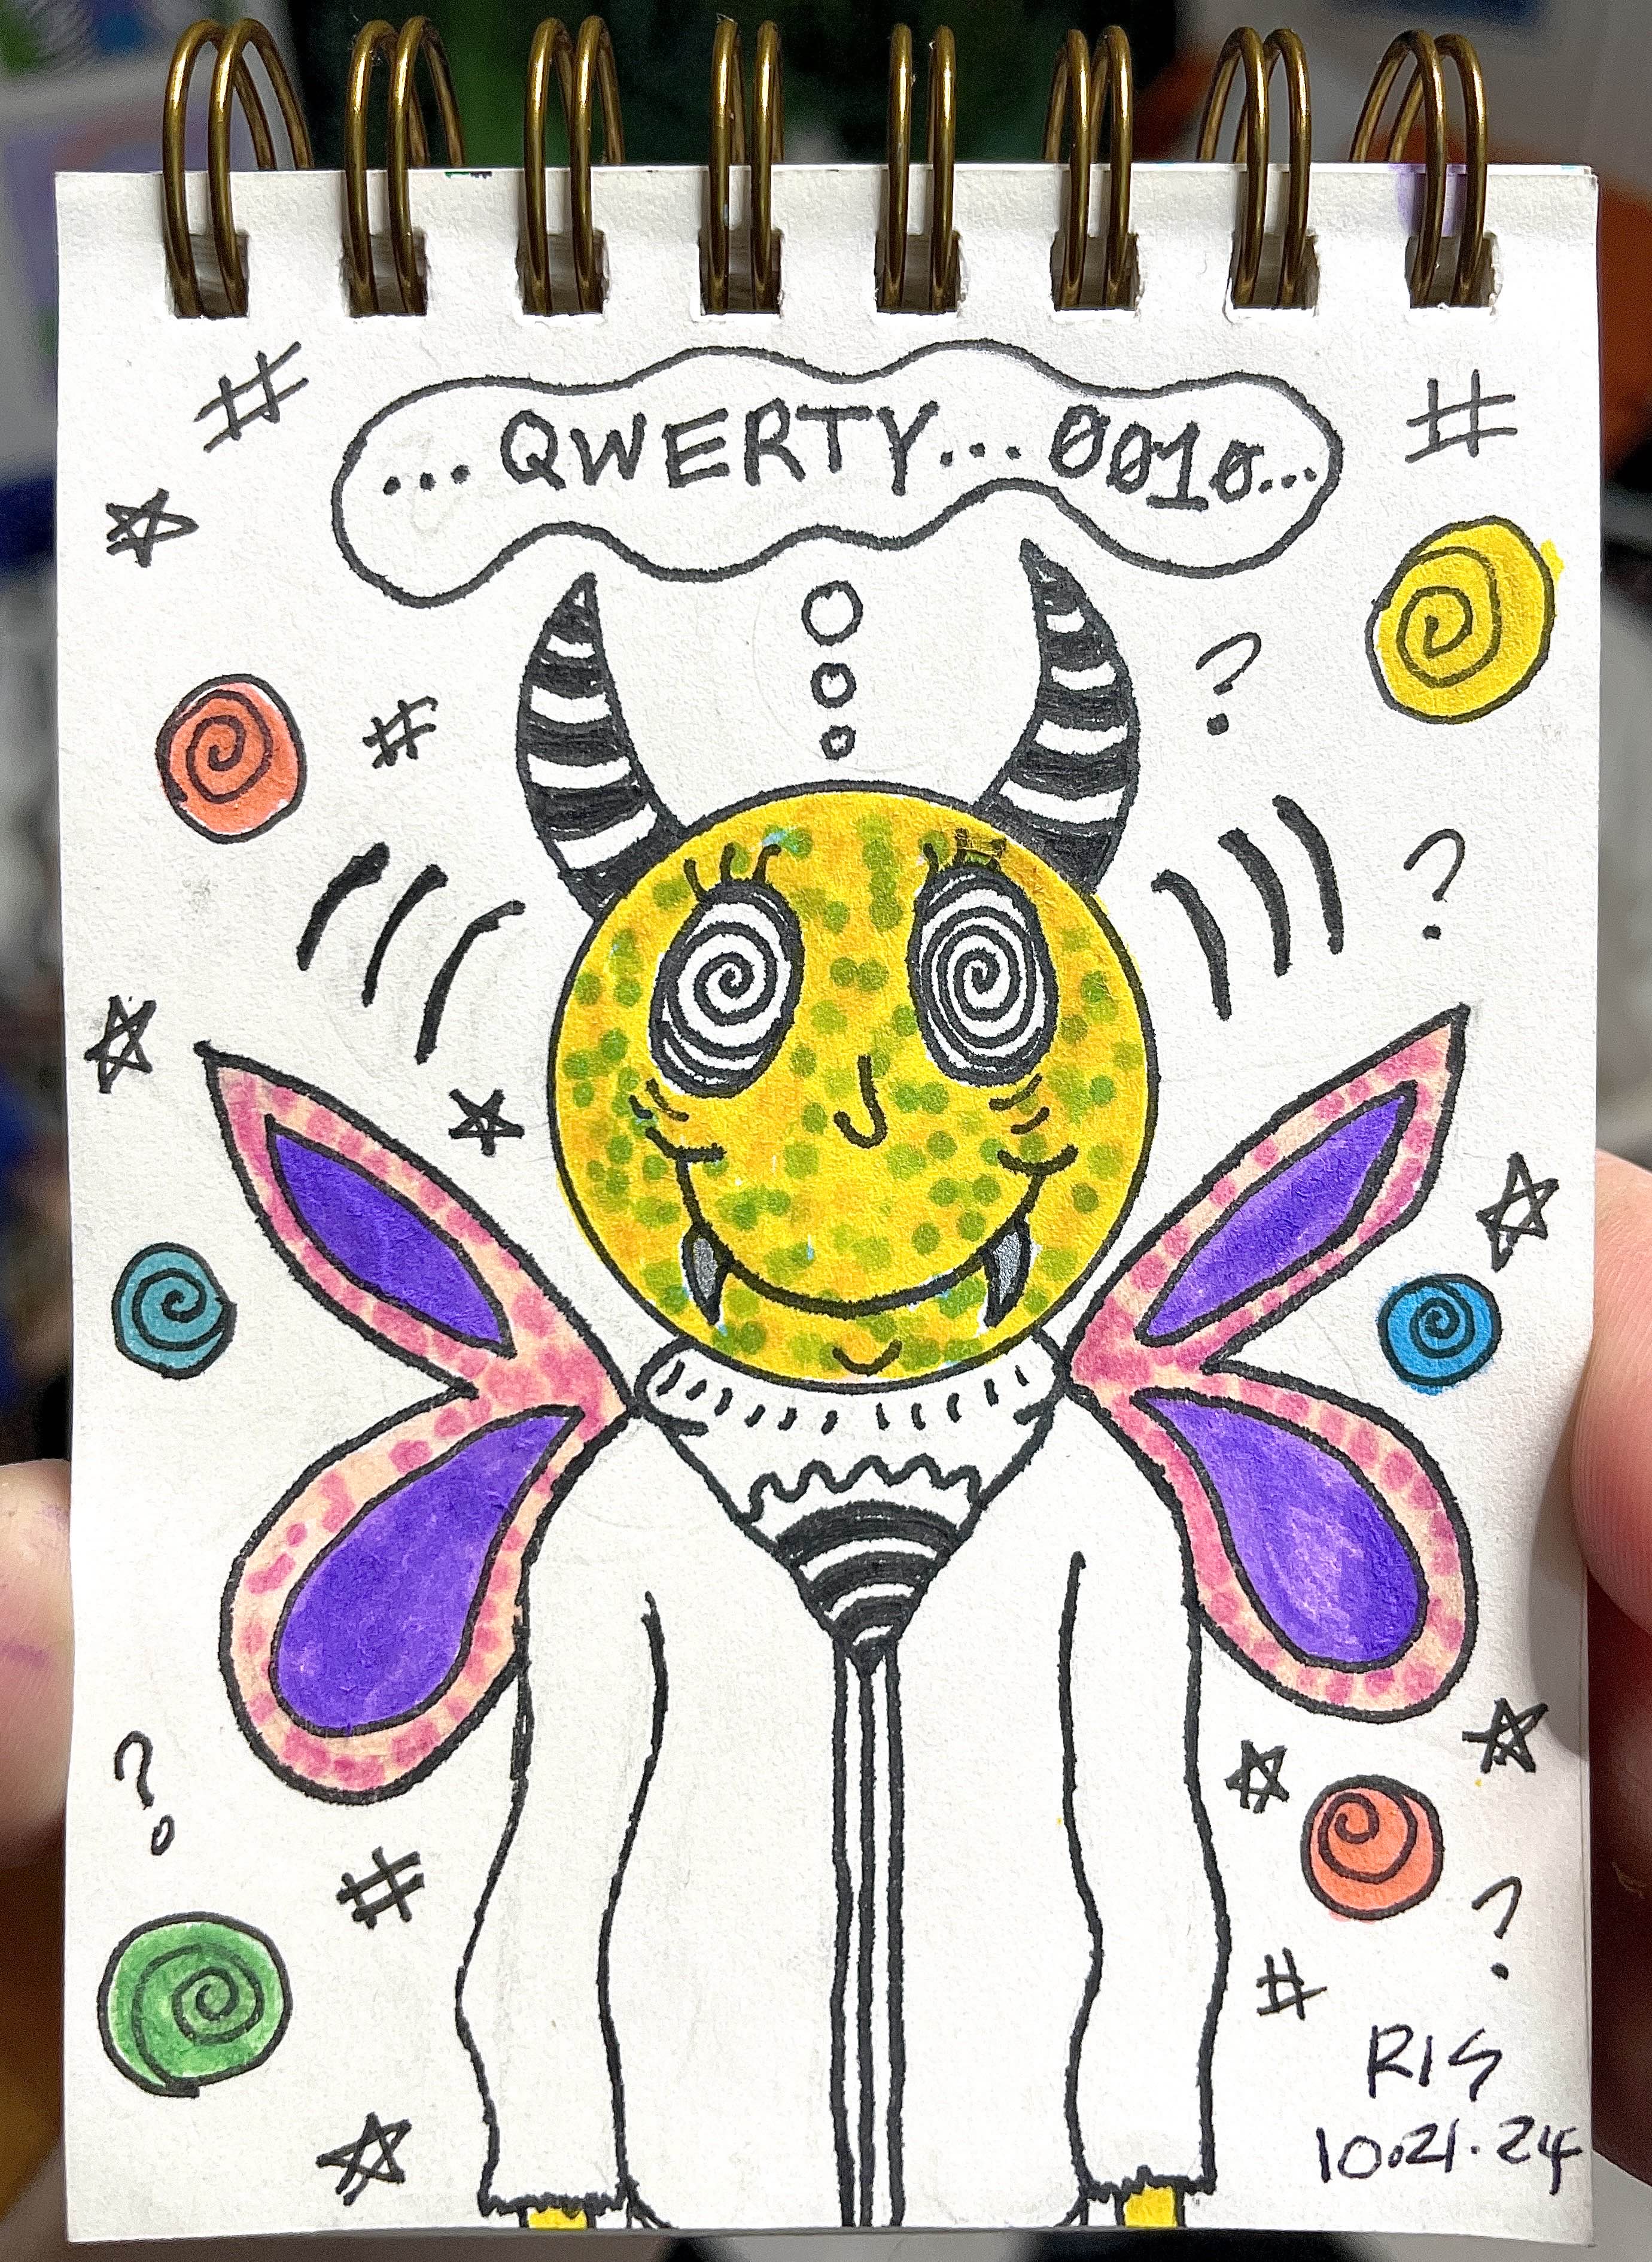 ...QWERTY...0010...
RIS
10.21.24